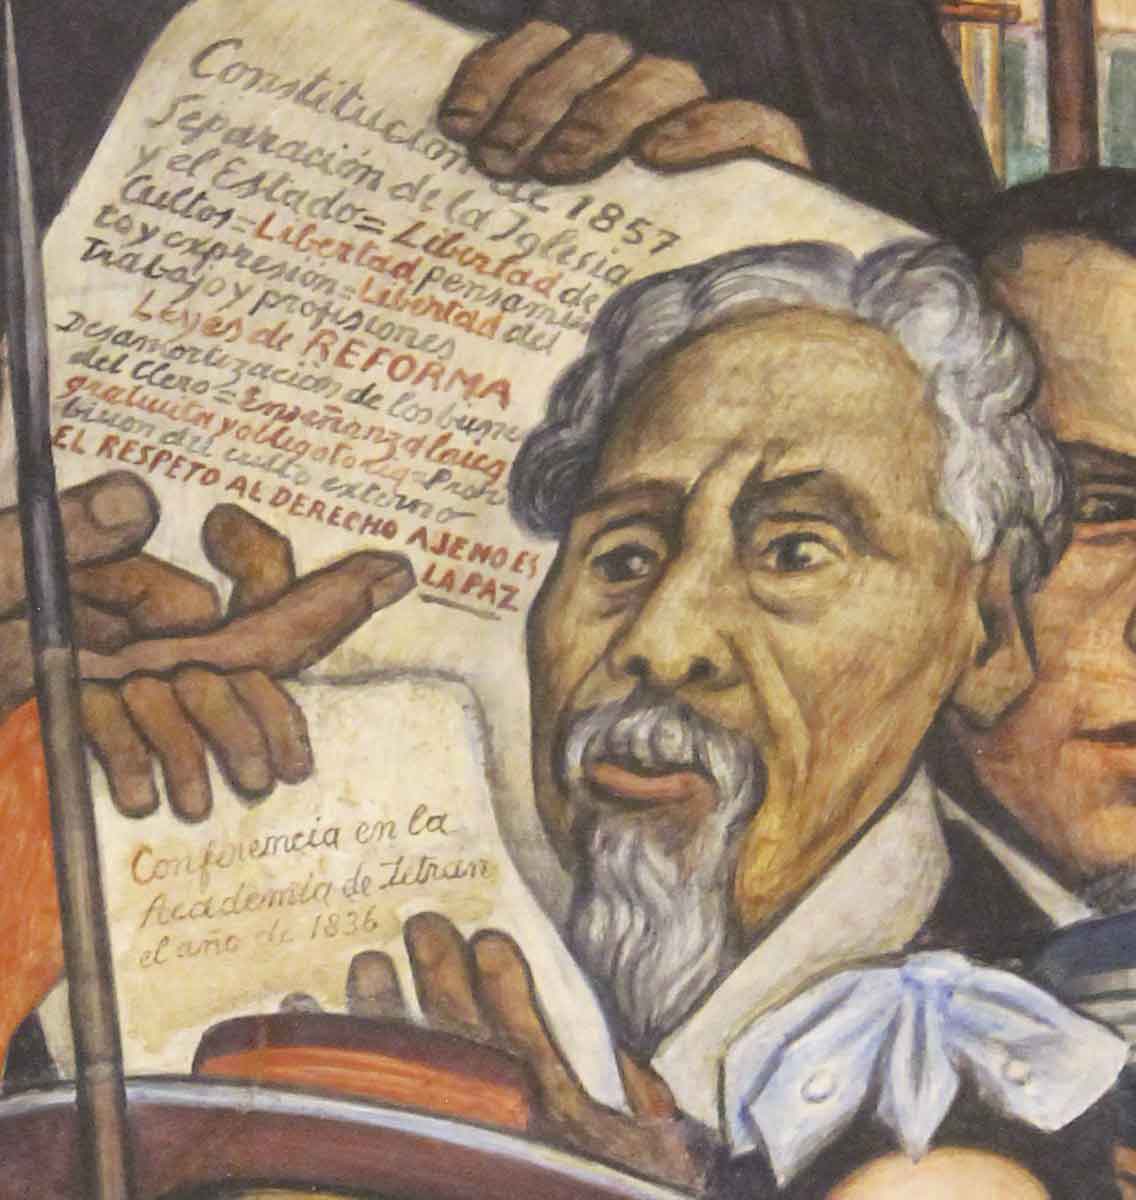 Constitucion de 1857
Separación de la Iglesia
y el Estado = Libertad de
Cultos = Libertad pensamien
to y expresión = Libertad del
Trabajo y profisiones
Leyes de REFORMA
Desamortización de los biene
del Clero = Enseñanza laica
gratuita y obligatoria = Prohi
bicion del culto externo
EL RESPETO AL DERECHO AJENO ES
LA PAZ
Conferencia en la
Academia de Letrán
el año de 1836